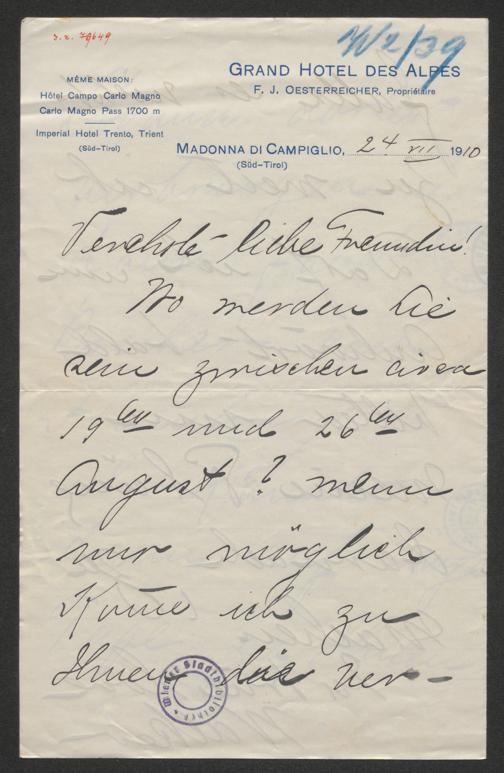 J. N. 79649
IV/2/39
MÊME MAISON:
Hôtel Campo Carlo Magno
Carlo Magno Pass 1700 m
Imperial Hotel Trento, Trient
(Süd-Tirol)
GRAND HOTEL DES ALPES
F. J. OESTERREICHER, Propriétaire
MADONNA DI CAMPIGLIO, 24 VII 1910
(Süd-Tirol)
Verehrte liebe Freundin!
Wo werden Sie
sein zwischen circa
19ten und 26ten
August? wenn
nur möglich
Kom̄e ich zu
Ihnen die ver-
Wiener Stadtbibliothek